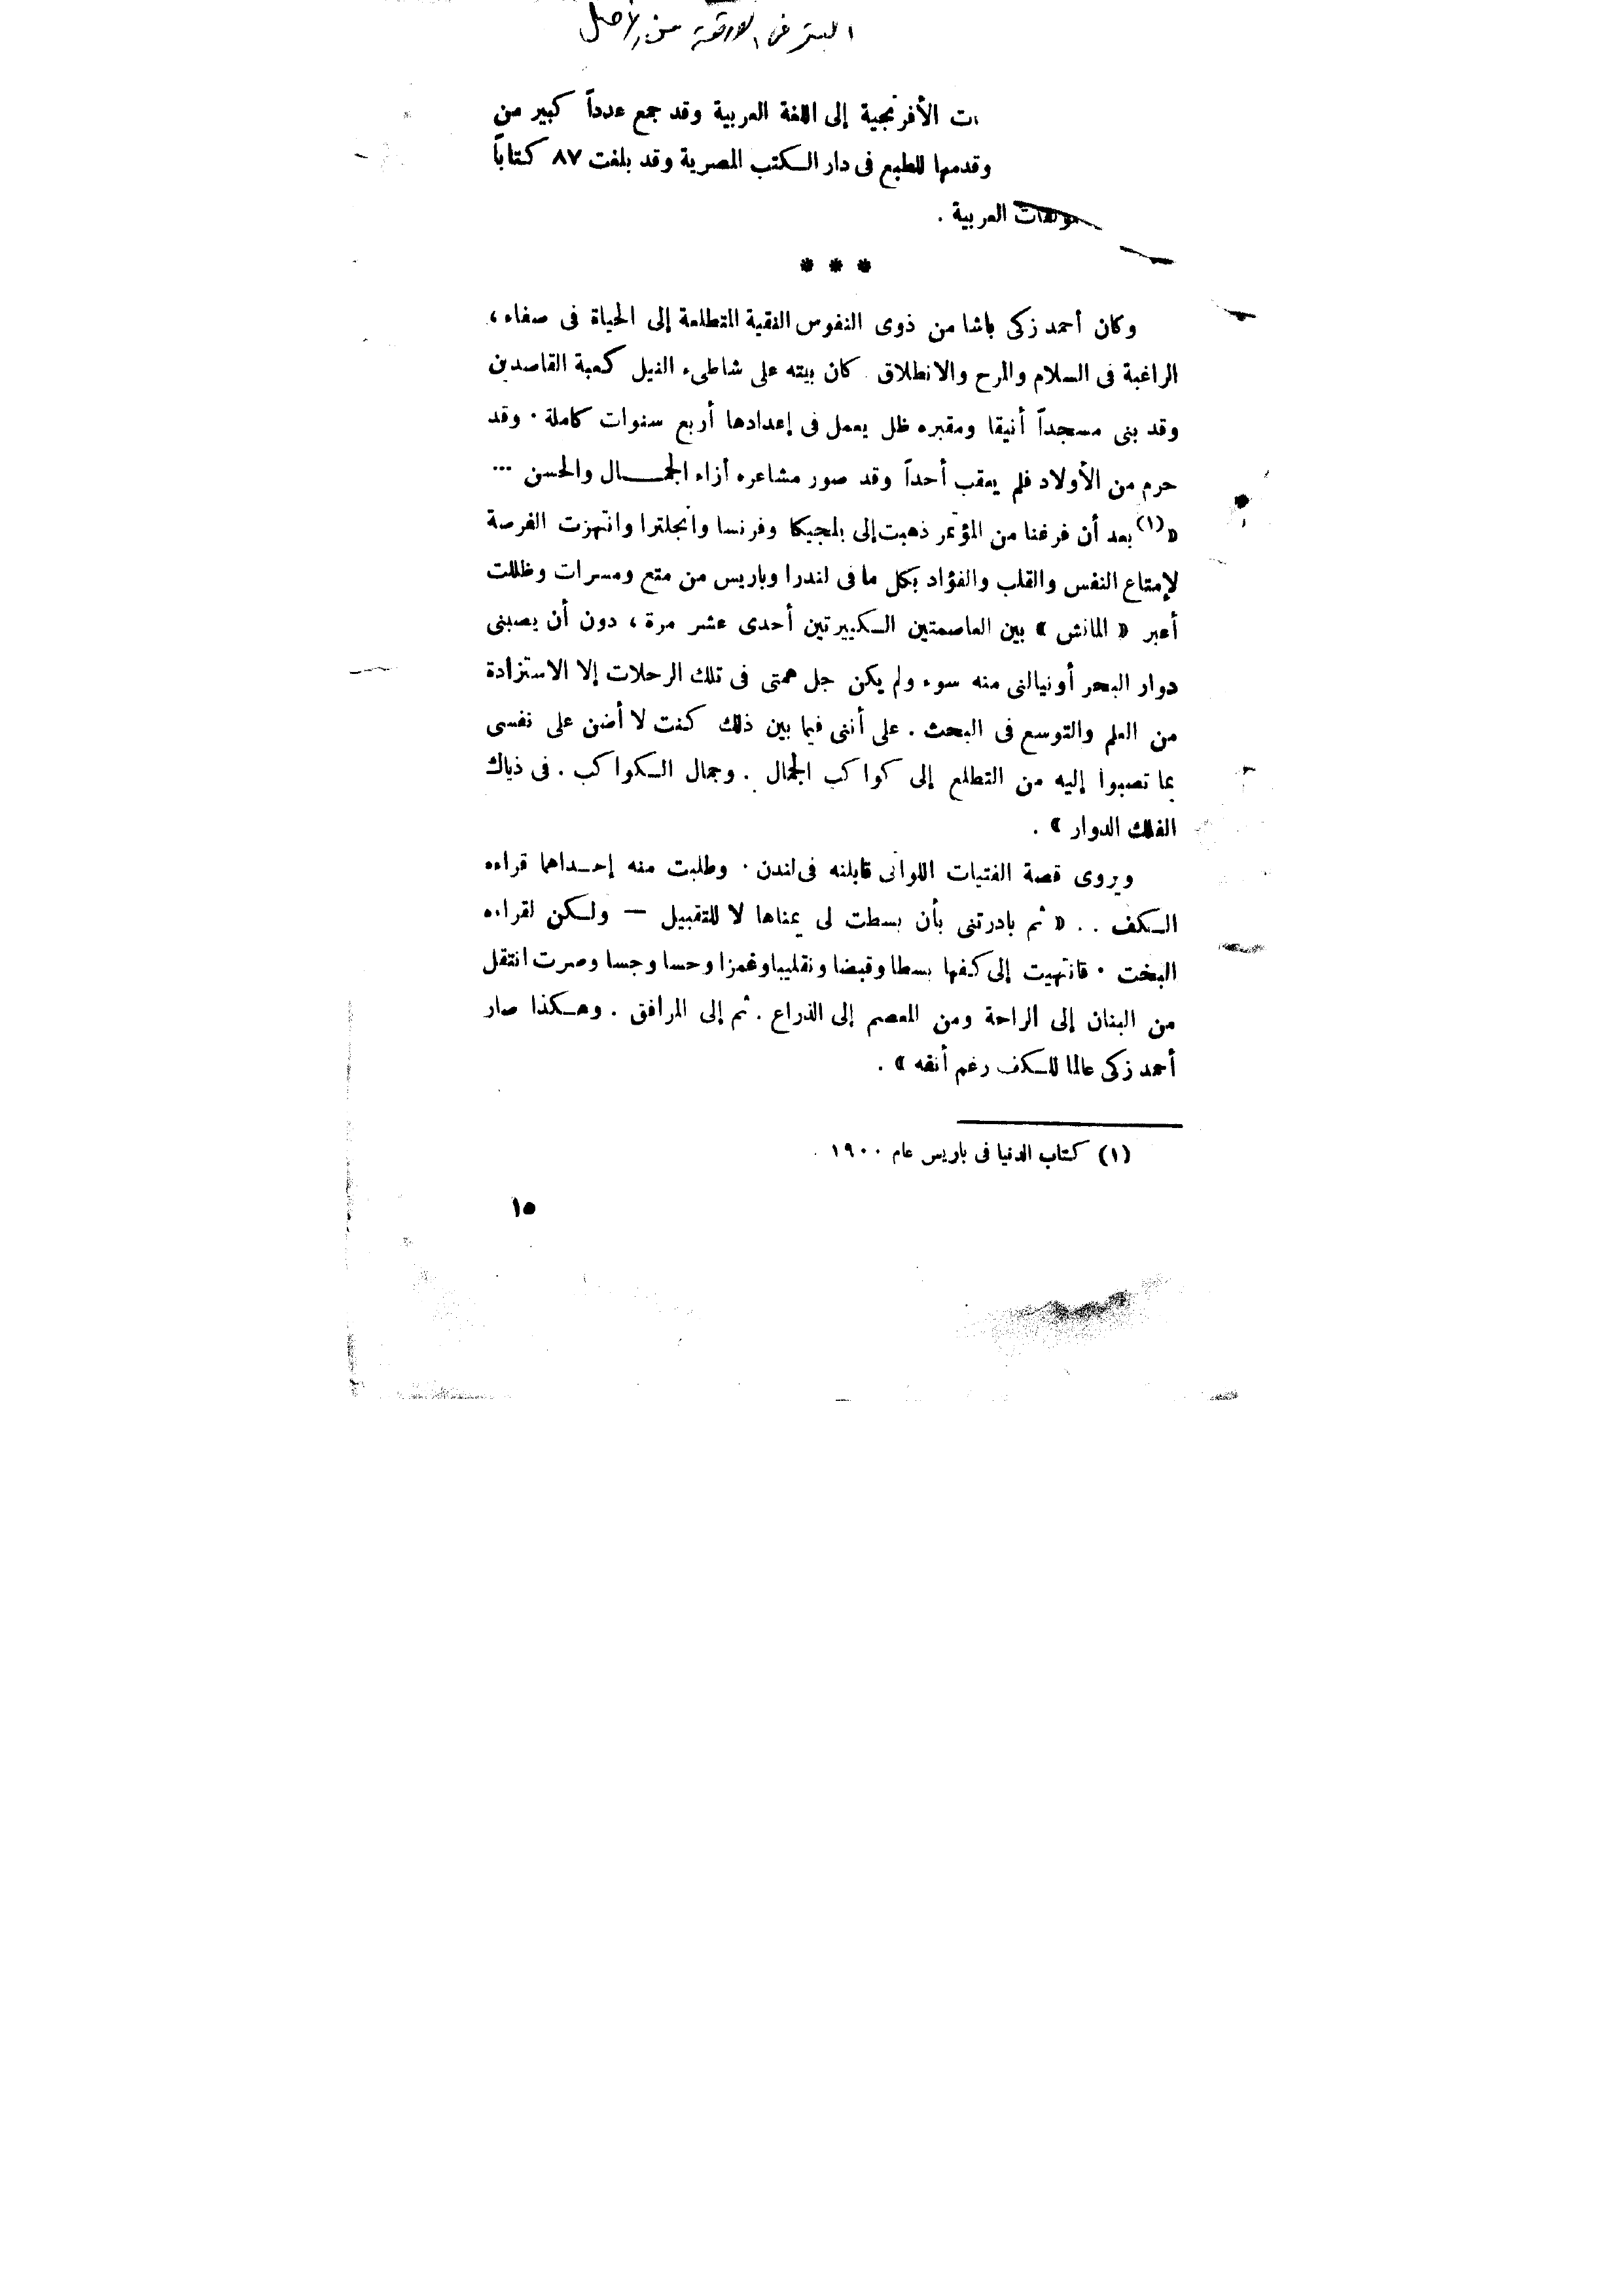 البتر في الورقة من الأصل
ات الأفرنجية إلى اللغة العربية وقد جمع عدداً كبير من
وقدمها للطبع فى دار الكتب المصرية وقد بلغت ٨٧ كتاباً
العربية .
* * *
وكان أحمد زكى باشا من ذوى النفوس النقية المتطلعة إلى الحياة فى صفاء ،
الراغبة فى السلام والمرح والانطلاق . كان بيته على شاطىء النيل كعبة القاصدين
وقد بنى مسجداً أنيقا ومقبره ظل يعمل فى إعدادها أربع سنوات كاملة . وقد
حرم من الأولاد فلم يعقب أحداً وقد صور مشاعره أزاء الجمال والحسن ...
« (١) بعد أن فرغنا من المؤتمر ذهبت إلى بلجيكا وفرنسا وانجلترا وانتهزت الفرصة
لإمتاع النفس والقلب والفؤاد بكل ما فى لندرا وباريس من متع ومسرات وظللت
أعبر « المانش » بين العاصمتين الكبيرتين أحدى عشر مرة ، دون أن يصبنى
دوار البحر أونيالنى منه سوء ولم يكن جل همتى فى تلك الرحلات إلا الاستزادة
من العلم والتوسع فى البحث . على أننى فيما بين ذلك كنت لا أضن على نفسى
بما تصبوا إليه من التطلع إلى كواكب الجمال . وجمال الكواكب . فى ذياك
الفلك الدوار » .
ويروى قصة الفتيات اللواتى قابلنه فى لندن . وطلبت منه إحداهما قراءه
الكف . . « ثم بادرتنى بأن بسطت لى يمناها لا للتقبيل — ولكن لقراءه
البخت . فانتهيت إلى كفها بسطا وقبضا ونقليبا وغمزا وحسا وجسا وصرت انتقل
من البنان إلى الراحة ومن المعصم إلى الذراع . ثم إلى المرافق . وهكذا صار
أحمد زكى عالما للكف رغم أنفه » .
(١) كتاب الدنيا فى باريس عام ١٩٠٠ .
١٥